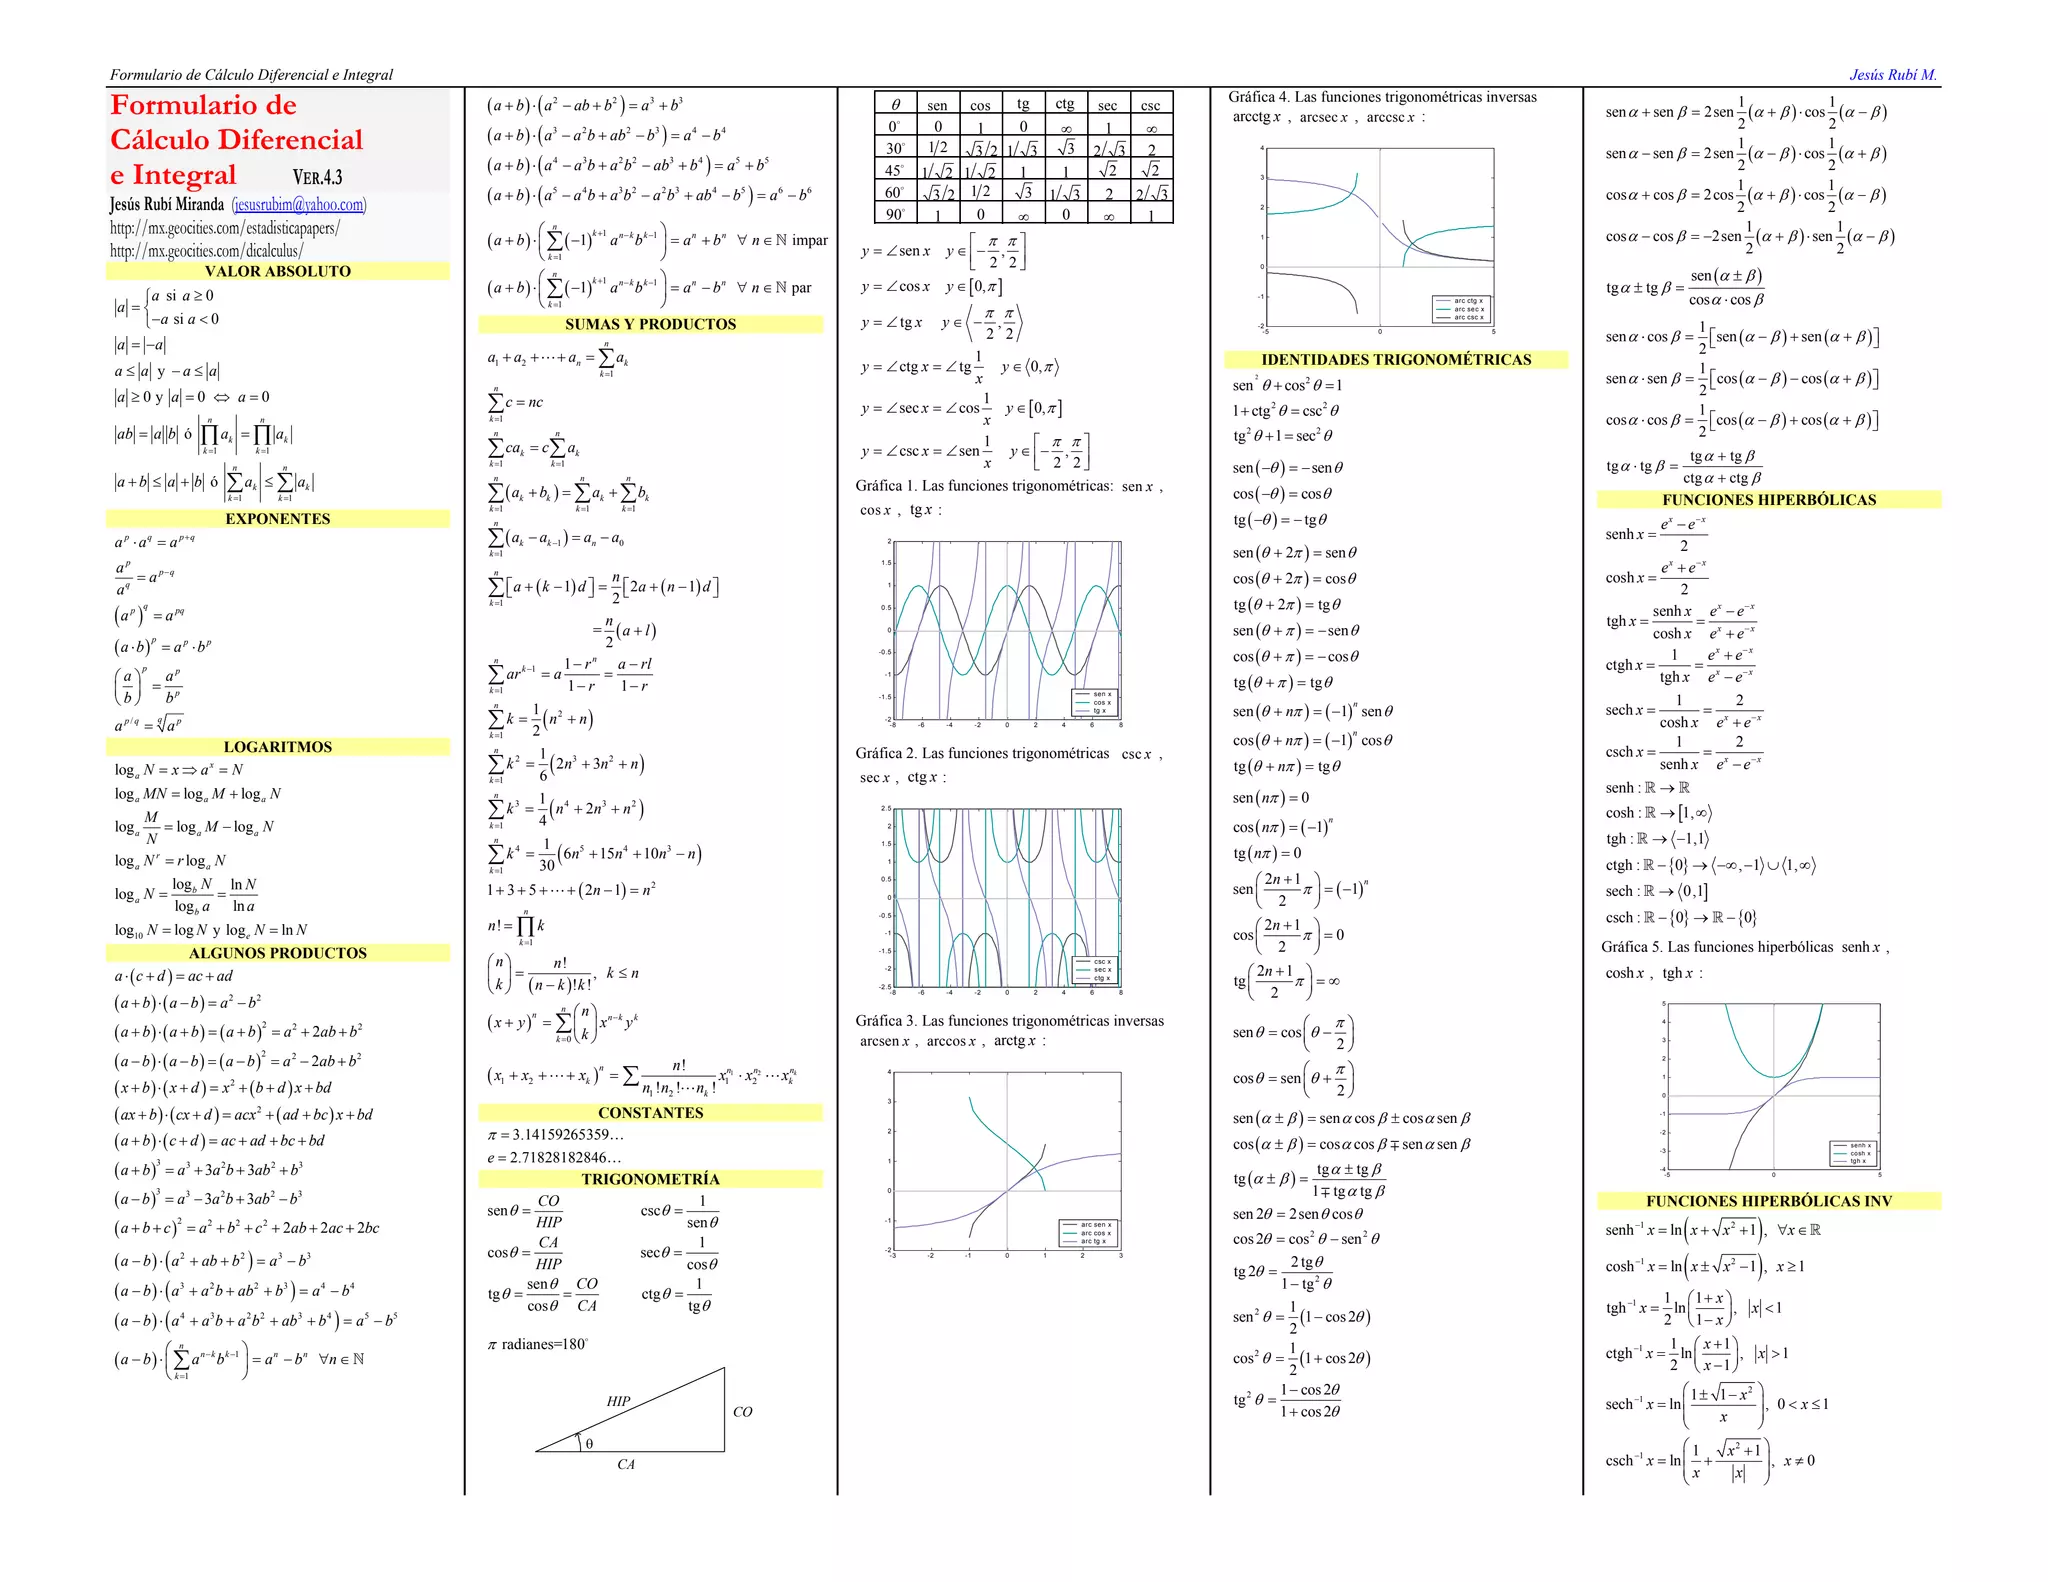 Formulario de Cálculo Diferencial e Integral
Jesús Rubí M.
Formulario de
Cálculo Diferencial
e Integral VER.4.3
Jesús Rubí Miranda (jesusrubim@yahoo.com)
http://mx.geocities.com/estadisticapapers/
http://mx.geocities.com/dicalculus/
VALOR ABSOLUTO
|a| = { a si a ≥ 0
−a si a < 0
|a| = |−a|
a ≤ |a| y −a ≤ |a|
|a| ≥ 0 y |a| = 0 ⇔ a = 0
|ab| = |a||b| ó |∏_{k=1}^{n} a_k| = ∏_{k=1}^{n} |a_k|
|a+b| ≤ |a|+|b| ó |∑_{k=1}^{n} a_k| ≤ ∑_{k=1}^{n} |a_k|
EXPONENTES
a^p · a^q = a^{p+q}
a^p / a^q = a^{p−q}
(a^p)^q = a^{pq}
(a·b)^p = a^p · b^p
(a/b)^p = a^p / b^p
a^{p/q} = ^q√a^p
LOGARITMOS
log_a N = x ⇒ a^x = N
log_a MN = log_a M + log_a N
log_a M/N = log_a M − log_a N
log_a N^r = r log_a N
log_a N = log_b N / log_b a = ln N / ln a
log_10 N = log N y log_e N = ln N
ALGUNOS PRODUCTOS
a·(c+d) = ac + ad
(a+b)·(a−b) = a² − b²
(a+b)·(a+b) = (a+b)² = a² + 2ab + b²
(a−b)·(a−b) = (a−b)² = a² − 2ab + b²
(x+b)·(x+d) = x² + (b+d)x + bd
(ax+b)·(cx+d) = acx² + (ad+bc)x + bd
(a+b)·(c+d) = ac + ad + bc + bd
(a+b)³ = a³ + 3a²b + 3ab² + b³
(a−b)³ = a³ − 3a²b + 3ab² − b³
(a+b+c)² = a² + b² + c² + 2ab + 2ac + 2bc
(a−b)·(a² + ab + b²) = a³ − b³
(a−b)·(a³ + a²b + ab² + b³) = a⁴ − b⁴
(a−b)·(a⁴ + a³b + a²b² + ab³ + b⁴) = a⁵ − b⁵
(a−b)·(∑_{k=1}^{n} a^{n−k} b^{k−1}) = a^n − b^n ∀n∈ℕ
(a+b)·(a² − ab + b²) = a³ + b³
(a+b)·(a³ − a²b + ab² − b³) = a⁴ − b⁴
(a+b)·(a⁴ − a³b + a²b² − ab³ + b⁴) = a⁵ + b⁵
(a+b)·(a⁵ − a⁴b + a³b² − a²b³ + ab⁴ − b⁵) = a⁶ − b⁶
(a+b)·(∑_{k=1}^{n} (−1)^{k+1} a^{n−k} b^{k−1}) = a^n + b^n ∀ n∈ℕ impar
(a+b)·(∑_{k=1}^{n} (−1)^{k+1} a^{n−k} b^{k−1}) = a^n − b^n ∀ n∈ℕ par
SUMAS Y PRODUCTOS
a₁ + a₂ + ⋯ + a_n = ∑_{k=1}^{n} a_k
∑_{k=1}^{n} c = nc
∑_{k=1}^{n} ca_k = c ∑_{k=1}^{n} a_k
∑_{k=1}^{n} (a_k + b_k) = ∑_{k=1}^{n} a_k + ∑_{k=1}^{n} b_k
∑_{k=1}^{n} (a_k − a_{k−1}) = a_n − a_0
∑_{k=1}^{n} [a + (k−1)d] = n/2 [2a + (n−1)d]
= n/2 (a+l)
∑_{k=1}^{n} ar^{k−1} = a (1−r^n)/(1−r) = (a−rl)/(1−r)
∑_{k=1}^{n} k = 1/2 (n² + n)
∑_{k=1}^{n} k² = 1/6 (2n³ + 3n² + n)
∑_{k=1}^{n} k³ = 1/4 (n⁴ + 2n³ + n²)
∑_{k=1}^{n} k⁴ = 1/30 (6n⁵ + 15n⁴ + 10n³ − n)
1 + 3 + 5 + ⋯ + (2n−1) = n²
n! = ∏_{k=1}^{n} k
(n k) = n! / (n−k)!k! , k ≤ n
(x+y)^n = ∑_{k=0}^{n} (n k) x^{n−k} y^k
(x₁ + x₂ + ⋯ + x_k)^n = ∑ n! / (n₁!n₂!⋯n_k!) x₁^{n₁} · x₂^{n₂} ⋯ x_k^{n_k}
CONSTANTES
π = 3.14159265359…
e = 2.71828182846…
TRIGONOMETRÍA
sen θ = CO/HIP csc θ = 1/sen θ
cos θ = CA/HIP sec θ = 1/cos θ
tg θ = sen θ/cos θ = CO/CA ctg θ = 1/tg θ
π radianes=180°
HIP
CO
θ
CA
θ sen cos tg ctg sec csc
0° 0 1 0 ∞ 1 ∞
30° 1/2 √3/2 1/√3 √3 2/√3 2
45° 1/√2 1/√2 1 1 √2 √2
60° √3/2 1/2 √3 1/√3 2 2/√3
90° 1 0 ∞ 0 ∞ 1
y = ∠sen x y ∈ [−π/2, π/2]
y = ∠cos x y ∈ [0, π]
y = ∠tg x y ∈ ⟨−π/2, π/2⟩
y = ∠ctg x = ∠tg 1/x y ∈ ⟨0, π⟩
y = ∠sec x = ∠cos 1/x y ∈ [0, π]
y = ∠csc x = ∠sen 1/x y ∈ [−π/2, π/2]
Gráfica 1. Las funciones trigonométricas: sen x ,
cos x , tg x :
2
1.5
1
0.5
0
-0.5
-1
-1.5
-2
-8 -6 -4 -2 0 2 4 6 8
sen x
cos x
tg x
Gráfica 2. Las funciones trigonométricas csc x ,
sec x , ctg x :
2.5
2
1.5
1
0.5
0
-0.5
-1
-1.5
-2
-2.5
-8 -6 -4 -2 0 2 4 6 8
csc x
sec x
ctg x
Gráfica 3. Las funciones trigonométricas inversas
arcsen x , arccos x , arctg x :
4
3
2
1
0
-1
-2
-3 -2 -1 0 1 2 3
arc sen x
arc cos x
arc tg x
Gráfica 4. Las funciones trigonométricas inversas
arcctg x , arcsec x , arccsc x :
4
3
2
1
0
-1
-2
-5 0 5
arc ctg x
arc sec x
arc csc x
IDENTIDADES TRIGONOMÉTRICAS
sen² θ + cos² θ = 1
1 + ctg² θ = csc² θ
tg² θ + 1 = sec² θ
sen(−θ) = −sen θ
cos(−θ) = cos θ
tg(−θ) = −tg θ
sen(θ + 2π) = sen θ
cos(θ + 2π) = cos θ
tg(θ + 2π) = tg θ
sen(θ + π) = −sen θ
cos(θ + π) = −cos θ
tg(θ + π) = tg θ
sen(θ + nπ) = (−1)^n sen θ
cos(θ + nπ) = (−1)^n cos θ
tg(θ + nπ) = tg θ
sen(nπ) = 0
cos(nπ) = (−1)^n
tg(nπ) = 0
sen((2n+1)/2 π) = (−1)^n
cos((2n+1)/2 π) = 0
tg((2n+1)/2 π) = ∞
sen θ = cos(θ − π/2)
cos θ = sen(θ + π/2)
sen(α ± β) = sen α cos β ± cos α sen β
cos(α ± β) = cos α cos β ∓ sen α sen β
tg(α ± β) = (tg α ± tg β)/(1 ∓ tg α tg β)
sen 2θ = 2 sen θ cos θ
cos 2θ = cos² θ − sen² θ
tg 2θ = 2 tg θ/(1 − tg² θ)
sen² θ = 1/2 (1 − cos 2θ)
cos² θ = 1/2 (1 + cos 2θ)
tg² θ = (1 − cos 2θ)/(1 + cos 2θ)
sen α + sen β = 2 sen 1/2 (α + β) · cos 1/2 (α − β)
sen α − sen β = 2 sen 1/2 (α − β) · cos 1/2 (α + β)
cos α + cos β = 2 cos 1/2 (α + β) · cos 1/2 (α − β)
cos α − cos β = −2 sen 1/2 (α + β) · sen 1/2 (α − β)
tg α ± tg β = sen(α ± β)/(cos α · cos β)
sen α · cos β = 1/2 [sen(α − β) + sen(α + β)]
sen α · sen β = 1/2 [cos(α − β) − cos(α + β)]
cos α · cos β = 1/2 [cos(α − β) + cos(α + β)]
tg α · tg β = (tg α + tg β)/(ctg α + ctg β)
FUNCIONES HIPERBÓLICAS
senh x = (e^x − e^{−x})/2
cosh x = (e^x + e^{−x})/2
tgh x = senh x/cosh x = (e^x − e^{−x})/(e^x + e^{−x})
ctgh x = 1/tgh x = (e^x + e^{−x})/(e^x − e^{−x})
sech x = 1/cosh x = 2/(e^x + e^{−x})
csch x = 1/senh x = 2/(e^x − e^{−x})
senh : ℝ → ℝ
cosh : ℝ → [1, ∞⟩
tgh : ℝ → ⟨−1,1⟩
ctgh : ℝ − {0} → ⟨−∞, −1⟩ ∪ ⟨1, ∞⟩
sech : ℝ → ⟨0,1]
csch : ℝ − {0} → ℝ − {0}
Gráfica 5. Las funciones hiperbólicas senh x ,
cosh x , tgh x :
5
4
3
2
1
0
-1
-2
-3
-4
-5 0 5
senh x
cosh x
tgh x
FUNCIONES HIPERBÓLICAS INV
senh⁻¹ x = ln(x + √(x² + 1)), ∀x ∈ ℝ
cosh⁻¹ x = ln(x ± √(x² − 1)), x ≥ 1
tgh⁻¹ x = 1/2 ln((1 + x)/(1 − x)), |x| < 1
ctgh⁻¹ x = 1/2 ln((x + 1)/(x − 1)), |x| > 1
sech⁻¹ x = ln((1 ± √(1 − x²))/x), 0 < x ≤ 1
csch⁻¹ x = ln(1/x + √(x² + 1)/|x|), x ≠ 0